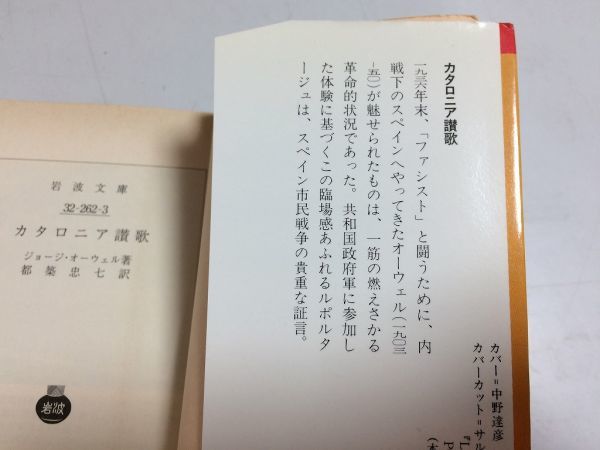 岩波文庫
32-262-3
カタロニア讃歌
ジョージ・オーウェル著
都築忠七訳
岩波
カタロニア讃歌
一九三六年末、「ファシスト」と闘うために、内
戦下のスペインへやってきたオーウェル(一九〇三
-五〇)が魅せられたものは、一筋の燃えさかる
革命的状況であった。共和国政府軍に参加し
た体験に基づくこの臨場感あふれるルポルタ
ージュは、スペイン市民戦争の貴重な証言。
カバー=中野達彦
カバーカット=サル